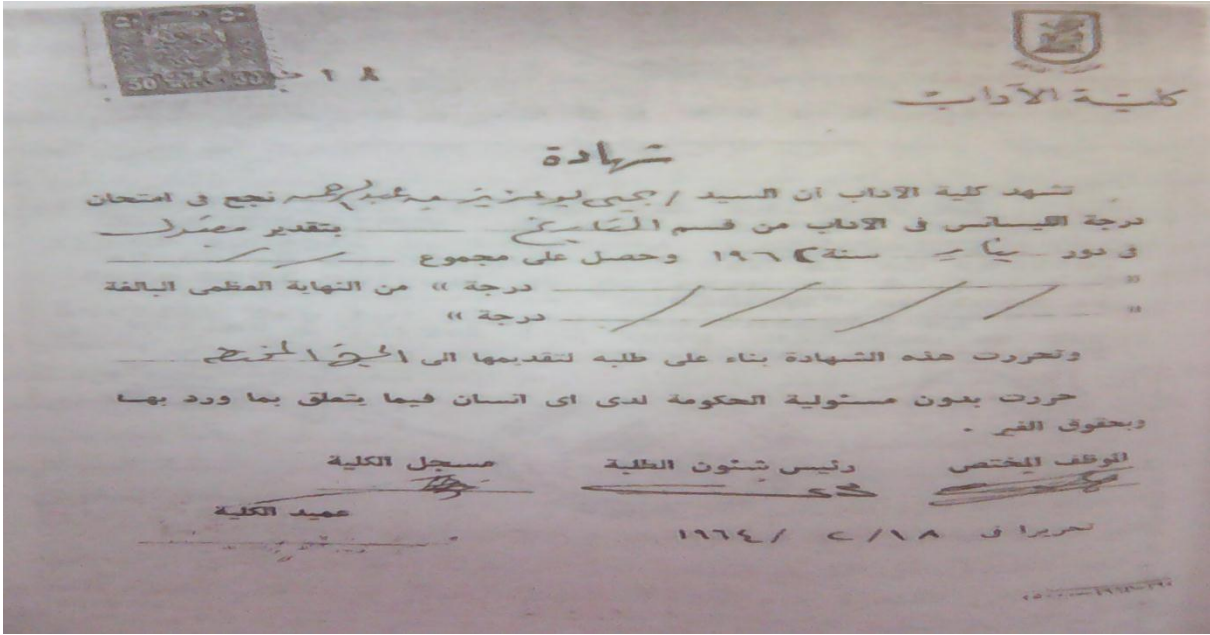 ٥٠ ٥٠
50 50
١٨
كلية الآداب
شهادة
تشهد كلية الآداب ان السيد / يحيى نجح فى امتحان
درجة الليسانس فى الآداب من قسم التاريخ بتقدير مقبول
فى دور يناير سنة ١٩٦٢ وحصل على مجموع
" درجة » من النهاية العظمى البالغة
" درجة »
وتحررت هذه الشهادة بناء على طلبه لتقديمها الى
حررت بدون مسئولية الحكومة لدى اى انسان فيما يتعلق بما ورد بها
وبحقوق الغير .
الموظف المختص رئيس شئون الطلبة مسجل الكلية
عميد الكلية
تحريرا فى ١٨/ ٢ / ١٩٦٤